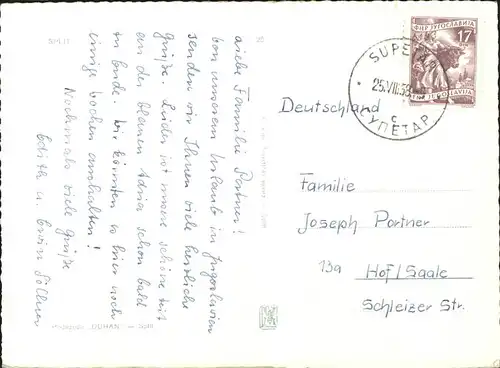 Liebe Familie Portner!
Von unserem Urlaub in Jugoslavien
senden wir Ihnen viele herzliche
Grüße. Leider ist unsere schöne Zeit
an der blauen Adria schon bald
zu Ende. Wir könnten es hier noch
einige Wochen aushalten!
Nochmals viele Grüße
Edith u. Erwin
"DUHAN" — Split
ФНР JУГОСЛАВИJА
17
FNR JUGOSLAVIJA
SUPETAR
25.VIII.58
c
СУПЕТАР
Deutschland
Familie
Joseph Portner
13a Hof/Saale
Schleizer Str.